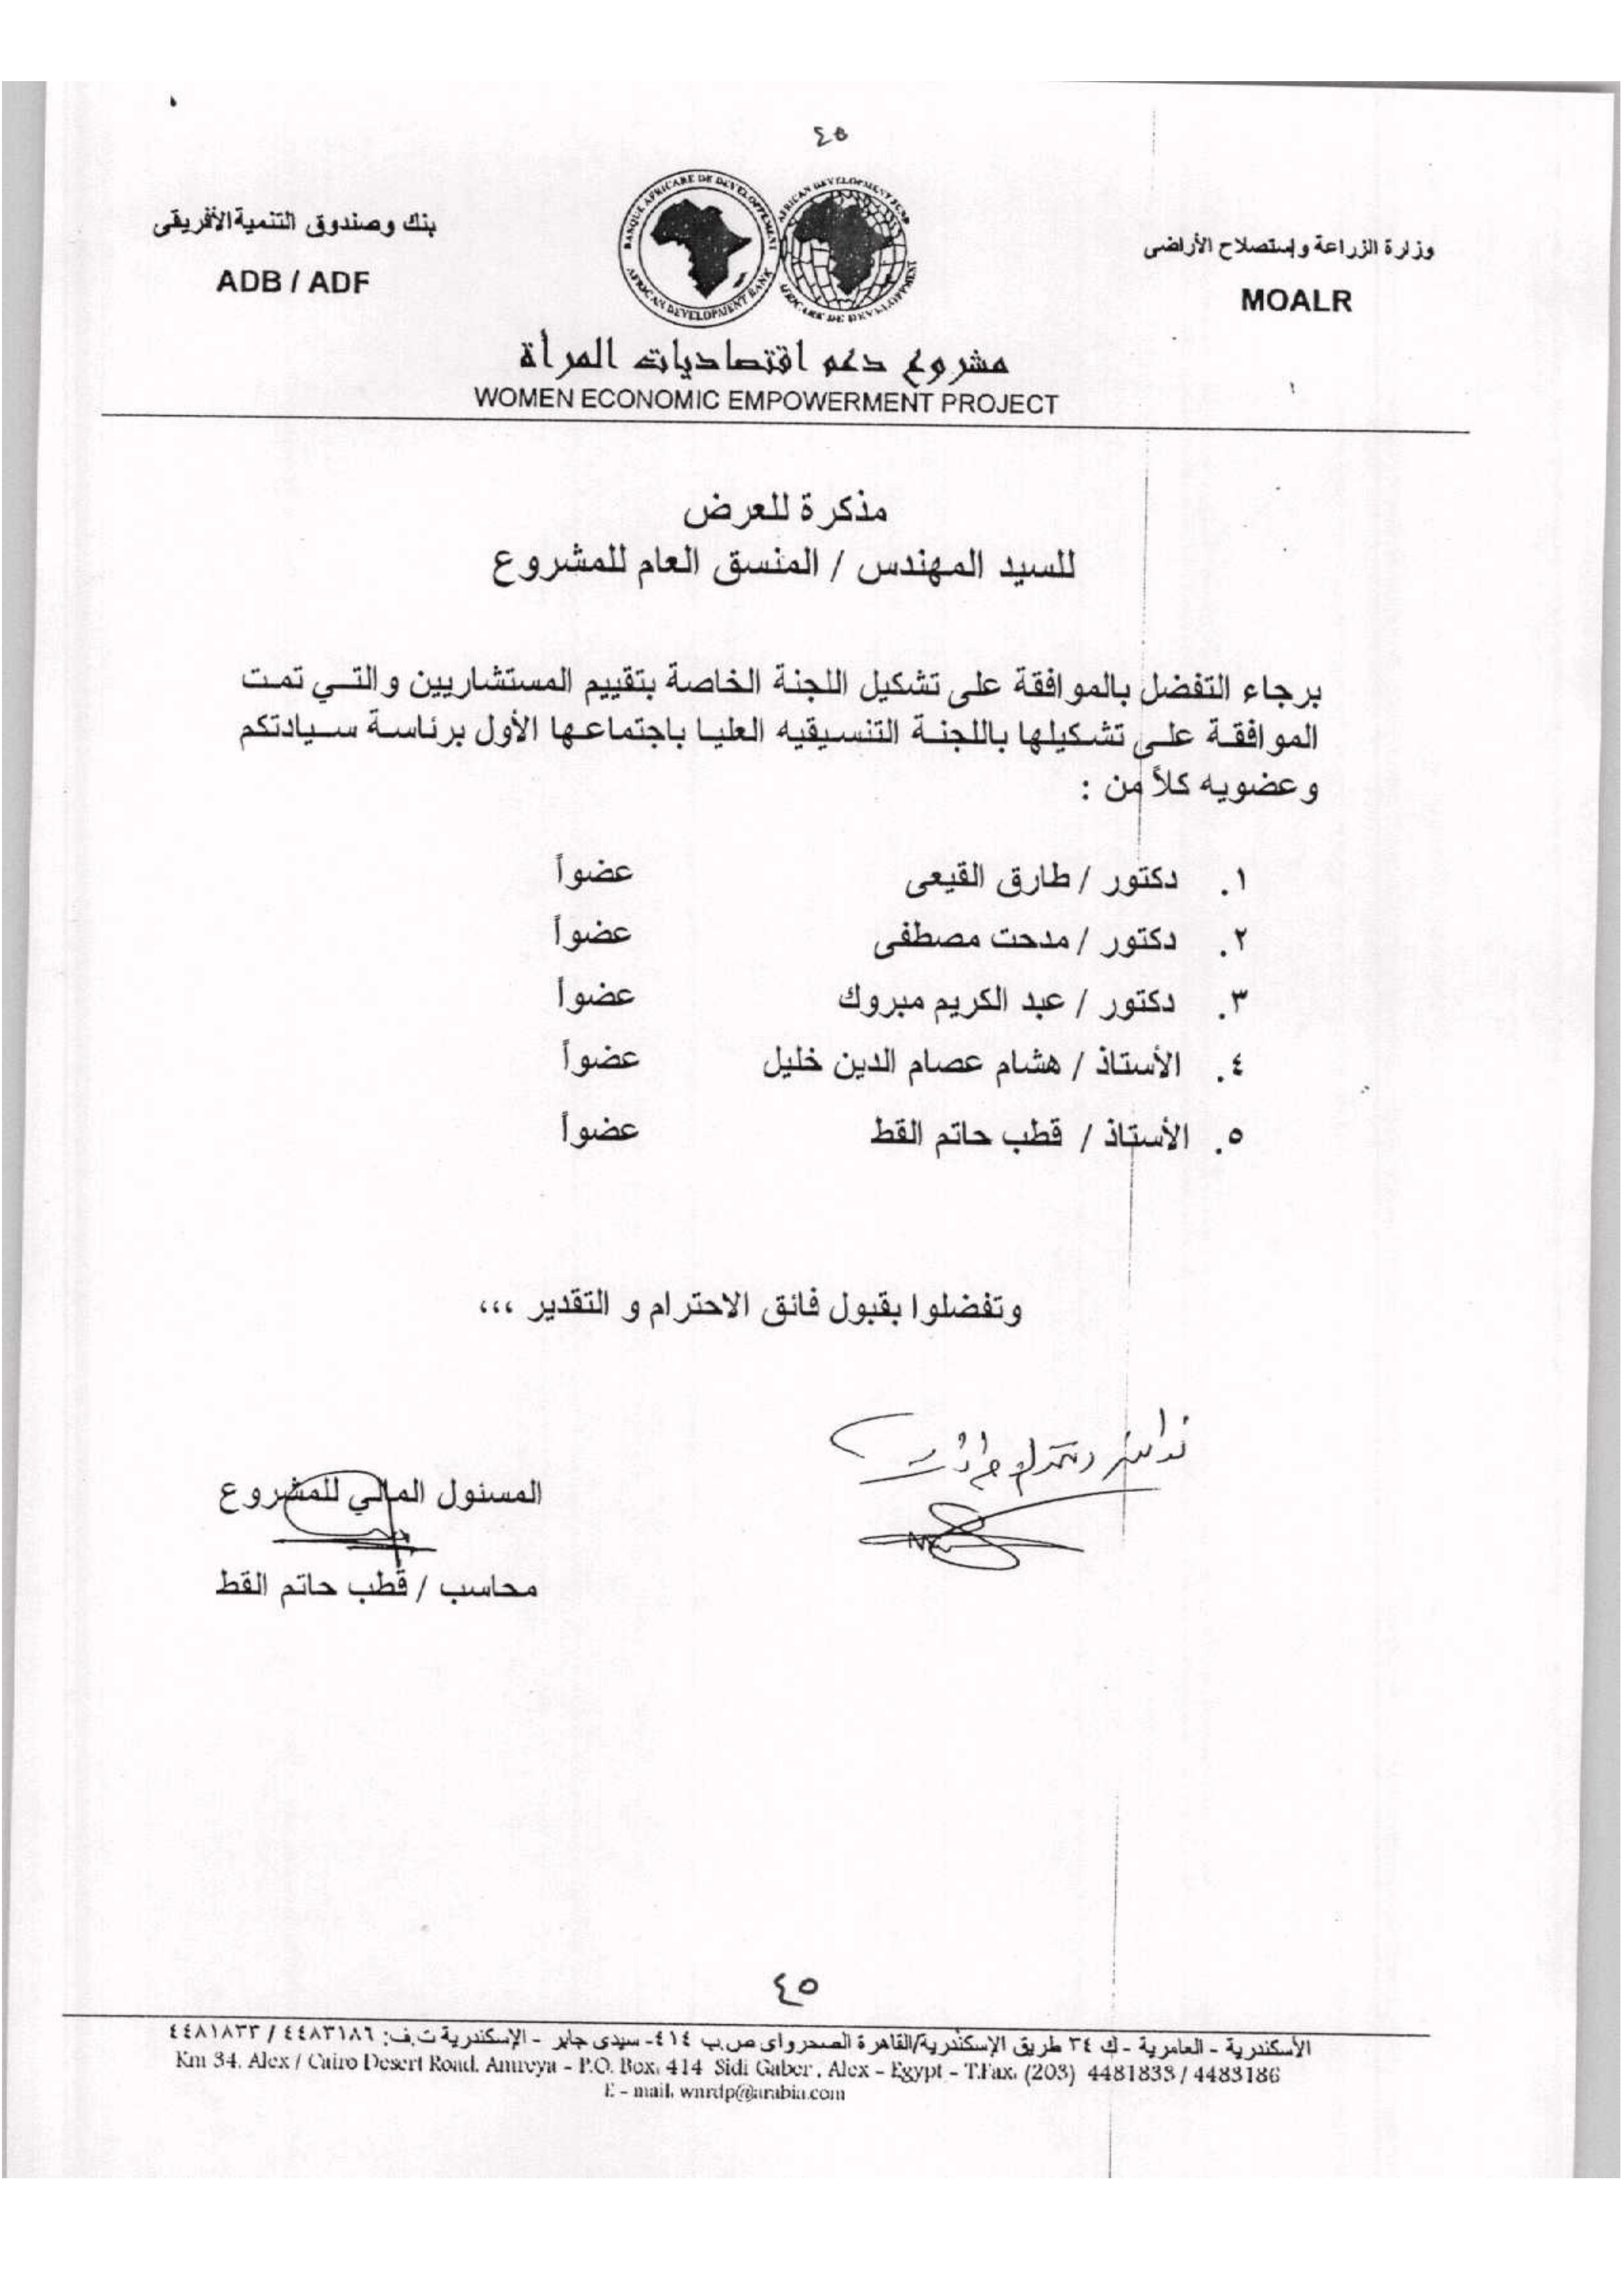 ٤٥
وزارة الزراعة وإستصلاح الأراضى
MOALR
BANQUE AFRICAINE DE DEVELOPPEMENT
AFRICAN DEVELOPMENT BANK
AFRICAN DEVELOPMENT FUND
بنك وصندوق التنمية الأفريقى
ADB / ADF
مشروع دعم اقتصاديات المرأة
WOMEN ECONOMIC EMPOWERMENT PROJECT
مذكرة للعرض
للسيد المهندس / المنسق العام للمشروع
برجاء التفضل بالموافقة على تشكيل اللجنة الخاصة بتقييم المستشاريين والتي تمت
الموافقة على تشكيلها باللجنة التنسيقيه العليا باجتماعها الأول برئاسة سيادتكم
وعضويه كلاً من :
١. دكتور / طارق القيعى عضواً
٢. دكتور / مدحت مصطفى عضواً
٣. دكتور / عبد الكريم مبروك عضواً
٤. الأستاذ / هشام عصام الدين خليل عضواً
٥. الأستاذ / قطب حاتم القط عضواً
وتفضلوا بقبول فائق الاحترام و التقدير ،،،
المسئول المالي للمشروع
محاسب / قطب حاتم القط
٤٥
الأسكندرية - العامرية - ك ٣٤ طريق الإسكندرية/القاهرة الصحرواى ص.ب ٤١٤- سيدى جابر - الإسكندرية ت.ف: ٤٤٨٣١٨٦ / ٤٤٨١٨٣٣
Km 34. Alex / Cairo Desert Road. Amreya - P.O. Box. 414 Sidi Gaber . Alex - Egypt - T.Fax. (203) 4481833 / 4483186
E - mail. wnrdp@arabia.com